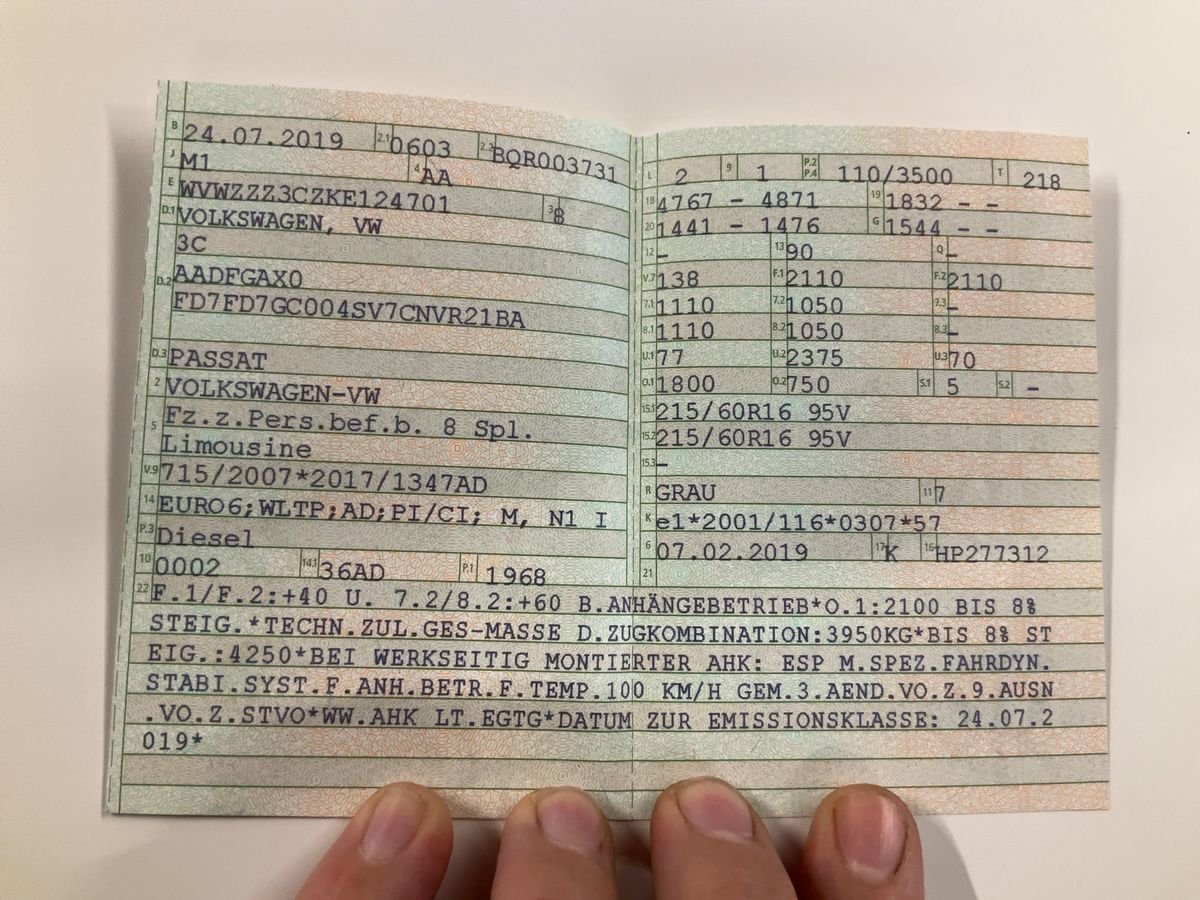 B 24.07.2019 2.1 0603 2.2 BQR003731
J M1 4 AA
E WVWZZZ3CZKE124701 3 8
D.1 VOLKSWAGEN, VW
3C
D.2 AADFGAX0
FD7FD7GC004SV7CNVR21BA
D.3 PASSAT
2 VOLKSWAGEN-VW
5 Fz.z.Pers.bef.b. 8 Spl.
Limousine
V.9 715/2007*2017/1347AD
14 EURO6;WLTP;AD;PI/CI; M, N1 I
P.3 Diesel
10 0002 14.1 36AD P.1 1968
L 2 9 1 P.2 P.4 110/3500 T 218
18 4767 - 4871 19 1832 - -
20 1441 - 1476 G 1544 - -
12 - 13 90 Q -
V.7 138 F.1 2110 F.2 2110
7.1 1110 7.2 1050 7.3 -
8.1 1110 8.2 1050 8.3 -
U.1 77 U.2 2375 U.3 70
O.1 1800 O.2 750 S.1 5 S.2 -
15.1 215/60R16 95V
15.2 215/60R16 95V
15.3 -
R GRAU 11 7
K e1*2001/116*0307*57
6 07.02.2019 17 K 16 HP277312
21
22 F.1/F.2:+40 U. 7.2/8.2:+60 B.ANHÄNGEBETRIEB*O.1:2100 BIS 8%
STEIG.*TECHN.ZUL.GES-MASSE D.ZUGKOMBINATION:3950KG*BIS 8% ST
EIG.:4250*BEI WERKSEITIG MONTIERTER AHK: ESP M.SPEZ.FAHRDYN.
STABI.SYST.F.ANH.BETR.F.TEMP.100 KM/H GEM.3.AEND.VO.Z.9.AUSN
.VO.Z.STVO*WW.AHK LT.EGTG*DATUM ZUR EMISSIONSKLASSE: 24.07.2
019*